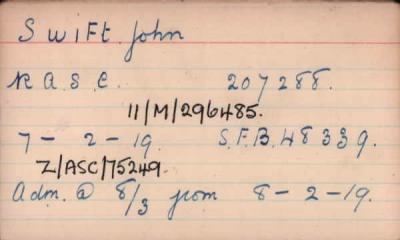 Swift. John
R A. S. C. 207288.
11/M/296485.
7 - 2 - 19. S.F.B. 48339.
Z/ASC/75249.
Adm. @ 8/3 from 8 - 2 - 19.